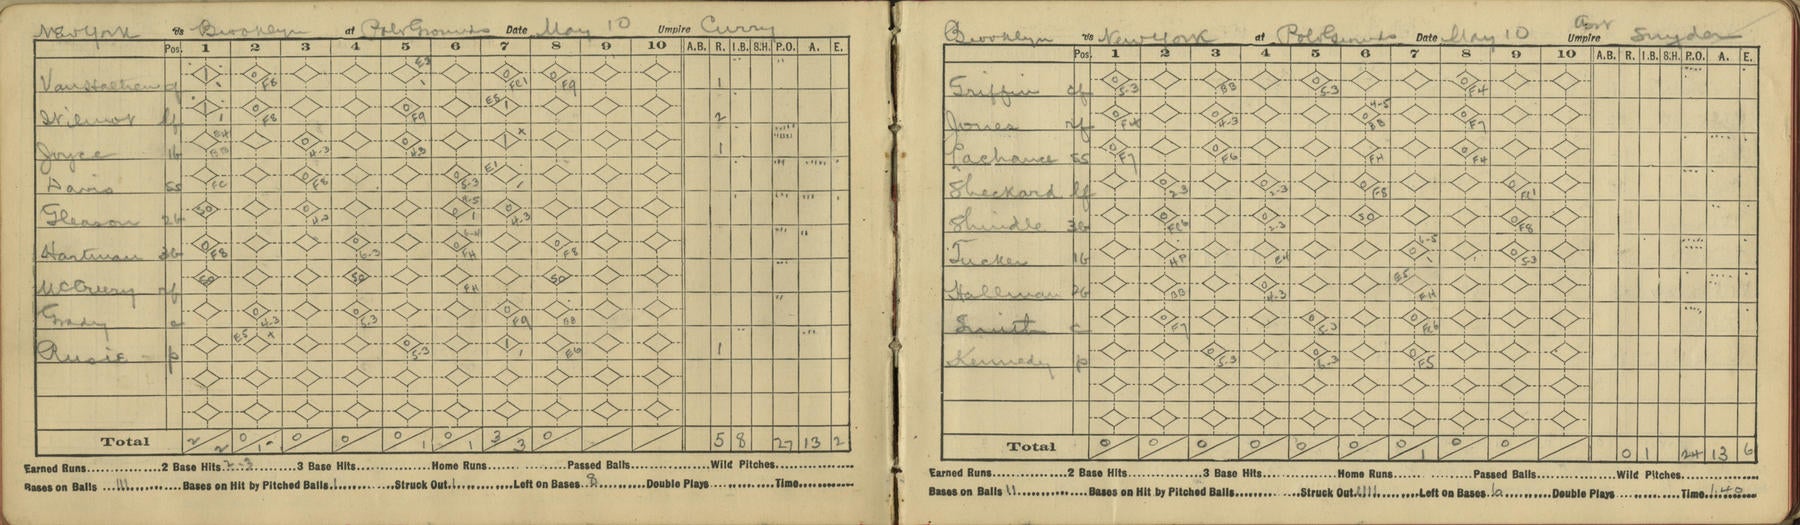 New York vs Brooklyn at Polo Grounds Date May 10 Umpire Curry
Pos. 1 2 3 4 5 6 7 8 9 10 A.B. R. 1.B. S.H. P.O. A. E.
Van Haltren cf F8 E3 1 FC1 F9 1
Wilmot lf 1 F8 F9 E5 1 2
Joyce 1b E4 BB 4-3 4-3 1 1
Davis ss FC F8 5-3 E1
Gleason 2b SO 4-3 1 4-3
Hartman 3b F8 6-3 FH F8
McCreery rf SO SO FH SO
Grady c 4-3 5-3 F9 BB
Rusie p E5 5-3 1 E6 1
Total 2 2 0 1 0 0 0 1 0 1 3 3 0 5 8 27 13 2
Earned Runs 2 Base Hits 2-3 3 Base Hits Home Runs Passed Balls Wild Pitches
Bases on Balls III Bases on Hit by Pitched Balls 1 Struck Out 1 Left on Bases 8 Double Plays Time
Brooklyn vs New York at Polo Grounds Date May 10 Umpire Snyder
Pos. 1 2 3 4 5 6 7 8 9 10 A.B. R. 1.B. S.H. P.O. A. E.
Griffin cf 5-3 BB 5-3 F4
Jones rf F4 4-3 4-5 BB F7
Lachance ss F7 F6 FH F4
Sheckard lf 2-3 2-3 F8 FC1
Shindle 3b FC6 2-3 SO F8
Tucker 1b HP E4 6-5 1 5-3
Hallman 2b BB 4-3 E5 FH
Smith c F7 5-3 FC6
Kennedy p 5-3 6-3 F5
Total 0 0 0 0 0 0 0 1 0 0 0 1 24 13 6
Earned Runs 2 Base Hits 3 Base Hits Home Runs Passed Balls Wild Pitches
Bases on Balls II Bases on Hit by Pitched Balls Struck Out IIII Left on Bases 6 Double Plays Time 1.40